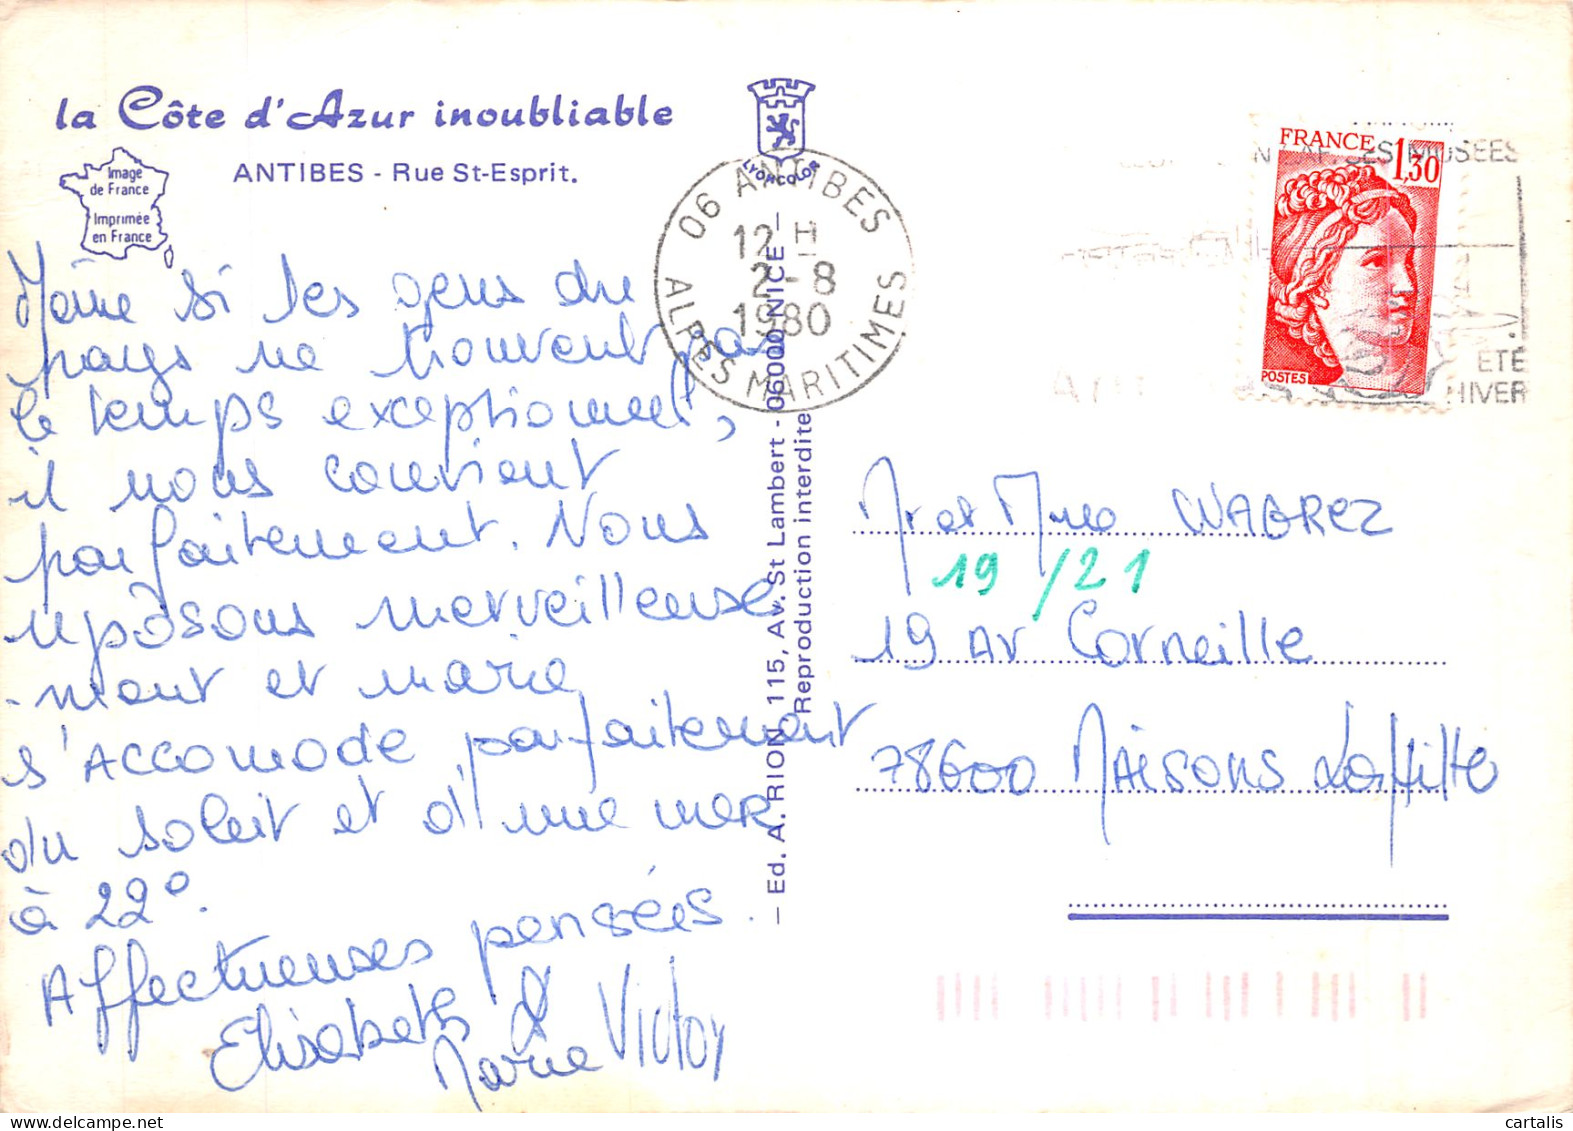 la Côte d'Azur inoubliable
ANTIBES - Rue St-Esprit.
Image
de France
Imprimée
en France
LYONCOLOR
Même si les gens du
pays ne trouvent pas
le temps exceptionnel,
il nous convient
parfaitement. Nous
reposons merveilleuse
-ment et marie
s'ACCOMODE parfaitement
du soleil et d'une mer
à 22°.
Affectueuses pensées.
Elisabeth &
Marie Victor
Ed. A. RION, 115, Av. St Lambert - 06000 NICE
Reproduction interdite
06 ANTIBES
12 H
2-8
1980
ALPES MARITIMES
SES MUSEES
ETE
HIVER
FRANCE
1,30
POSTES
Mr et Mme WAGREZ
19/21
19 Av Corneille
78600 MAISONS Laffitte
cartalis